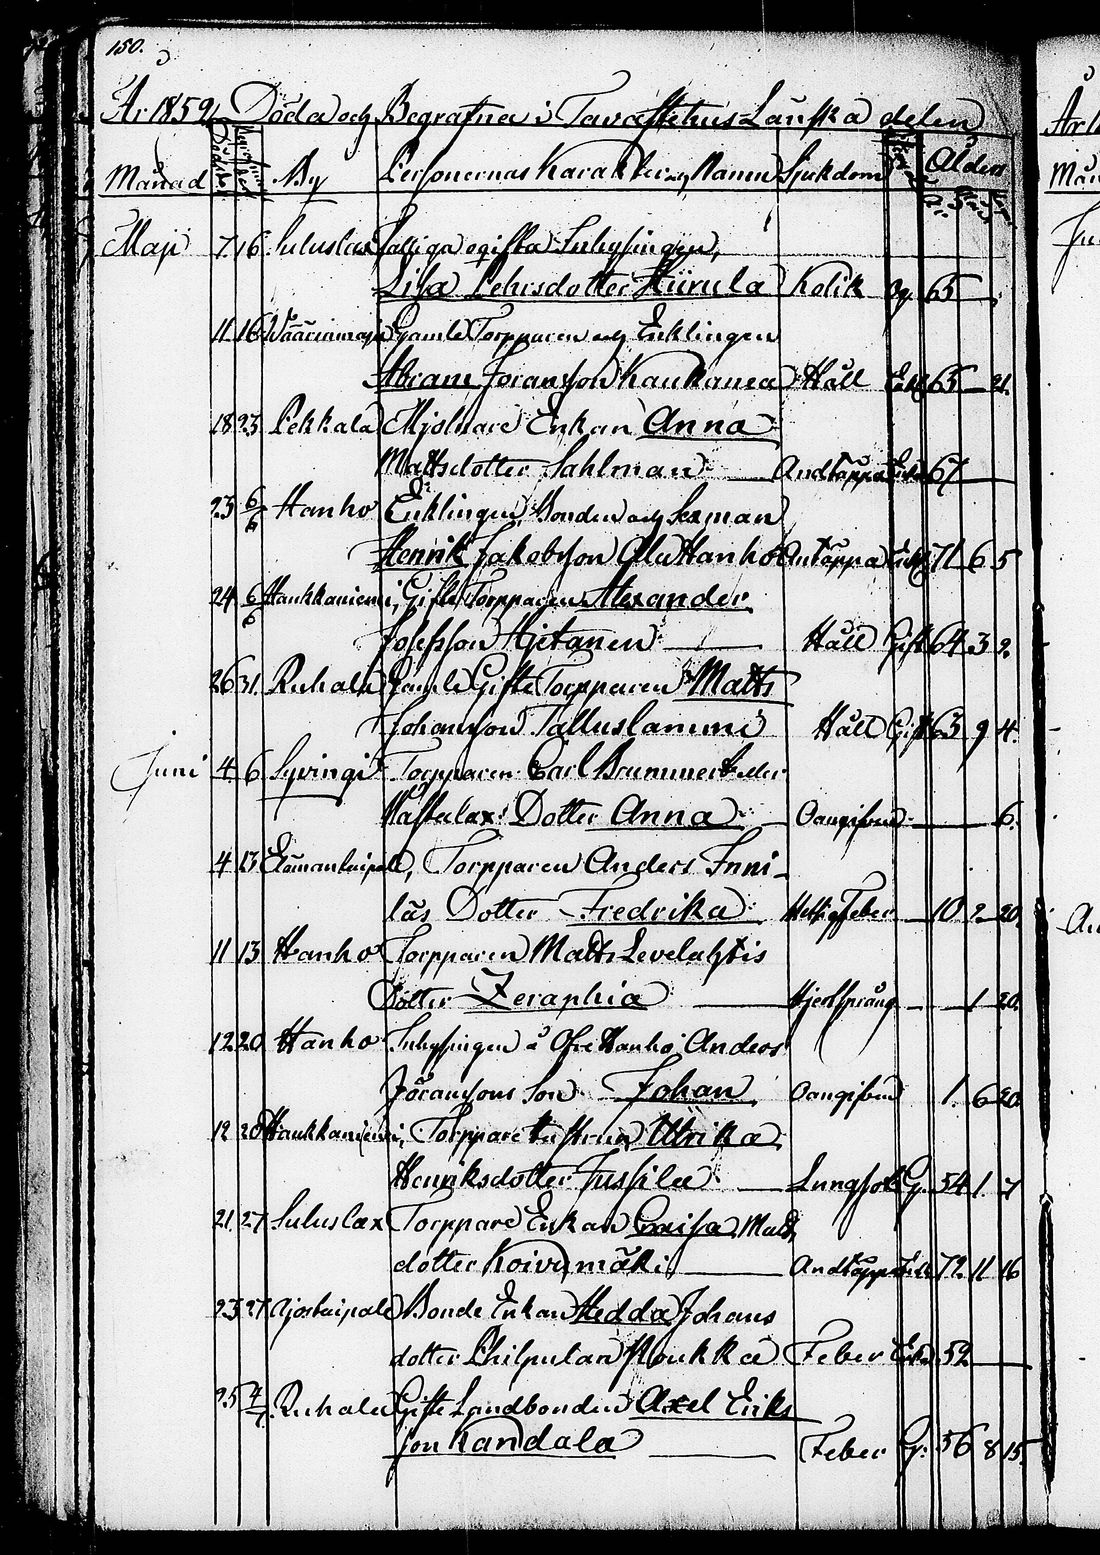 150.
År 1859, Döda och Begrafna i Tavastehus Länska delen
Månad By Personernas Karakter och Namn Sjukdom Ålder
Maji 7 16 Suluslax Fattiga ogifta Inhysingen,
Lisa Pehrsdotter Hürula Kolik Og. 65
11 16 Gamle Torpparen och Enklingen
Abram Jöransson Kaukanea Håll Enkl 65 — 21.
18 23 Pekkala Mjölnare Enkan Anna
Mattsdotter Sahlman — Andtäppa Enka 67
23 6/6 Hanho Enklingen, Bonden och Sexman
Henrik Jakobsson Ala Hanho Antäppa Enkl 71 6 5
24 6/6 Haukkaniemi, Gifte Torpparen Alexander
Josefsson Hjetanen — Håll Gift 64 3 2.
26 31 Ruhala Gamle Gifte Torpparen Matts
Johansson Talluslammi Håll Gift 63 9 4.
Juni 4 6 Syvingi Torpparen Carl Brummer eller
Dotter Anna — Oangifven — 6.
4 13 Torpparen Anders Inni-
läs Dotter Fredrika Hettig Feber — 10 2 20
11 13 Hanho Torpparen Matts Levelahtis
Dotter Zeraphia — Hjertsprång — 1 20.
12 20 Hanho Inhysingen å Öfre Hanho Anders
Jöranssons Son Johan Oangifven 1. 6 20
12 20 Haukkaniemi, Torppare Hustrun Ulrika
Henriksdotter Jussila — Lungsot G. 54 1. 7
21. 27 Suluslax Torppare Enkan Caisa Matts
dotter Koivumäki — Andtäppa Enka 72 11 16
23 27 Ajostaipale Bonde Enkan Hedda Johans
dotter Philpulan Moukka Feber Enka 52 —
25 4/7. Ruhala Gifte Landbonden Axel Eriks
son Kandala — Feber G. 56 8 15.